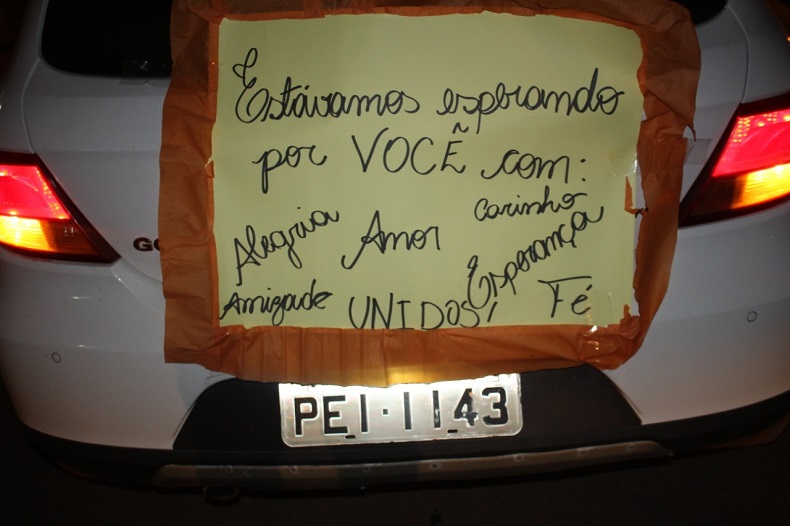 Estávamos esperando
por VOCÊ com:
Alegria Amor Carinho
Amizade UNIDOS! Esperança Fé
GO
PEI·1143